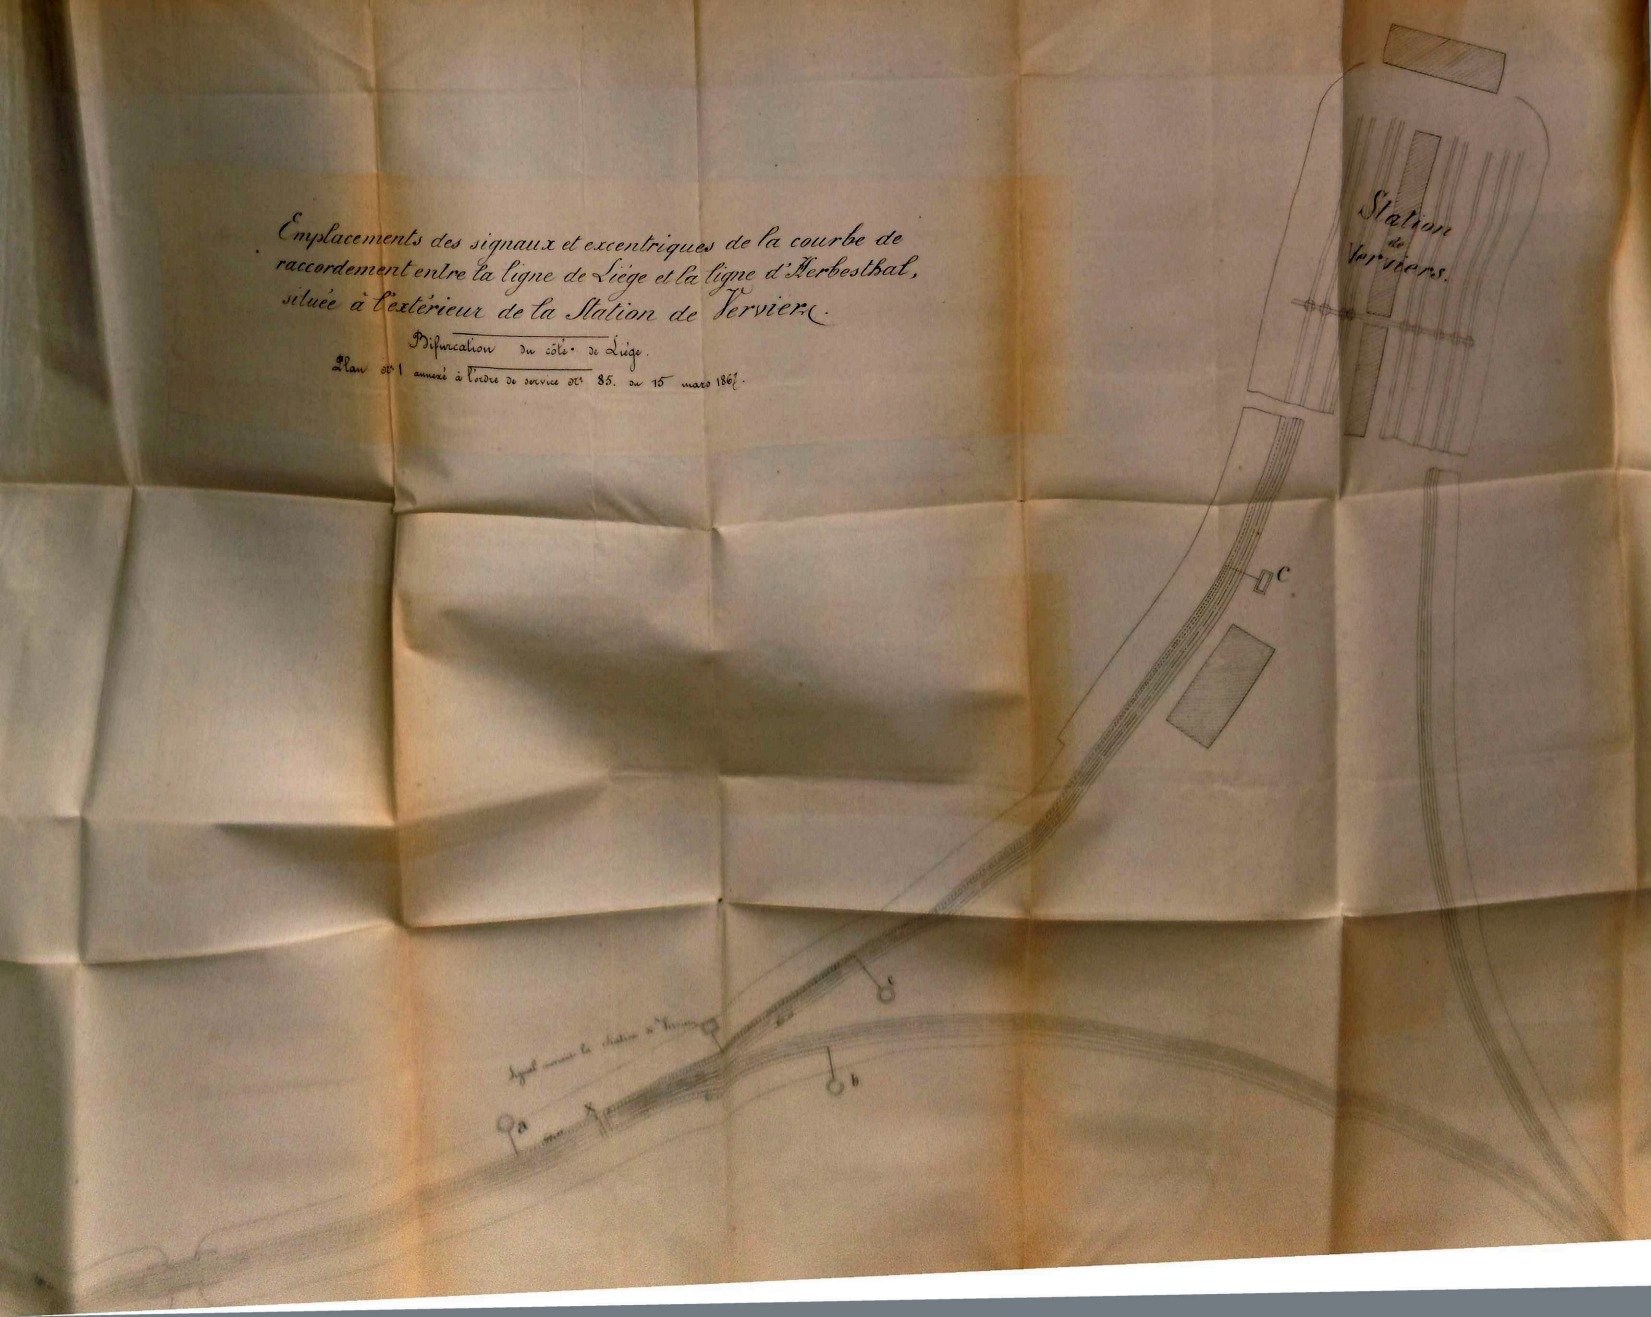 Emplacements des signaux et excentriques de la courbe de
raccordement entre la ligne de Liége et la ligne d'Herbesthal,
située à l'extérieur de la Station de Verviers.
Bifurcation du côté de Liége.
Plan N° 1 annexé à l'ordre de service N° 85. du 15 mars 1867.
Station
de
Verviers.
C
c
Signal la station de
b
a